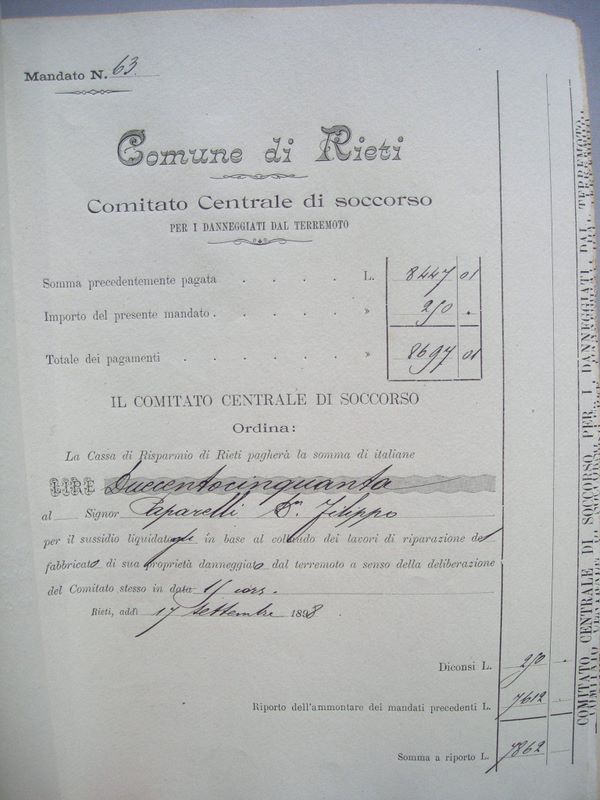 Mandato N. 63
Comune di Rieti
Comitato Centrale di soccorso
PER I DANNEGGIATI DAL TERREMOTO
Somma precedentemente pagata . . . . L. 8447 01
Importo del presente mandato . . . . . » 250 .
Totale dei pagamenti . . . . . » 8697 01
IL COMITATO CENTRALE DI SOCCORSO
Ordina:
La Cassa di Risparmio di Rieti pagherà la somma di italiane
LIRE Duecentocinquanta
al Signor Paparelli D.r Filippo
per il sussidio liquidatogli in base al collaudo dei lavori di riparazione del
fabbricato di sua proprietà danneggiato dal terremoto a senso della deliberazione
del Comitato stesso in data cors.
Rieti, addì 17 settembre 1898.
Diconsi L. 250 .
Riporto dell'ammontare dei mandati precedenti L. 7612 .
Somma a riporto L. 7862 .
COMITATO CENTRALE DI SOCCORSO PER I DANNEGGIATI DAL TERREMOTO